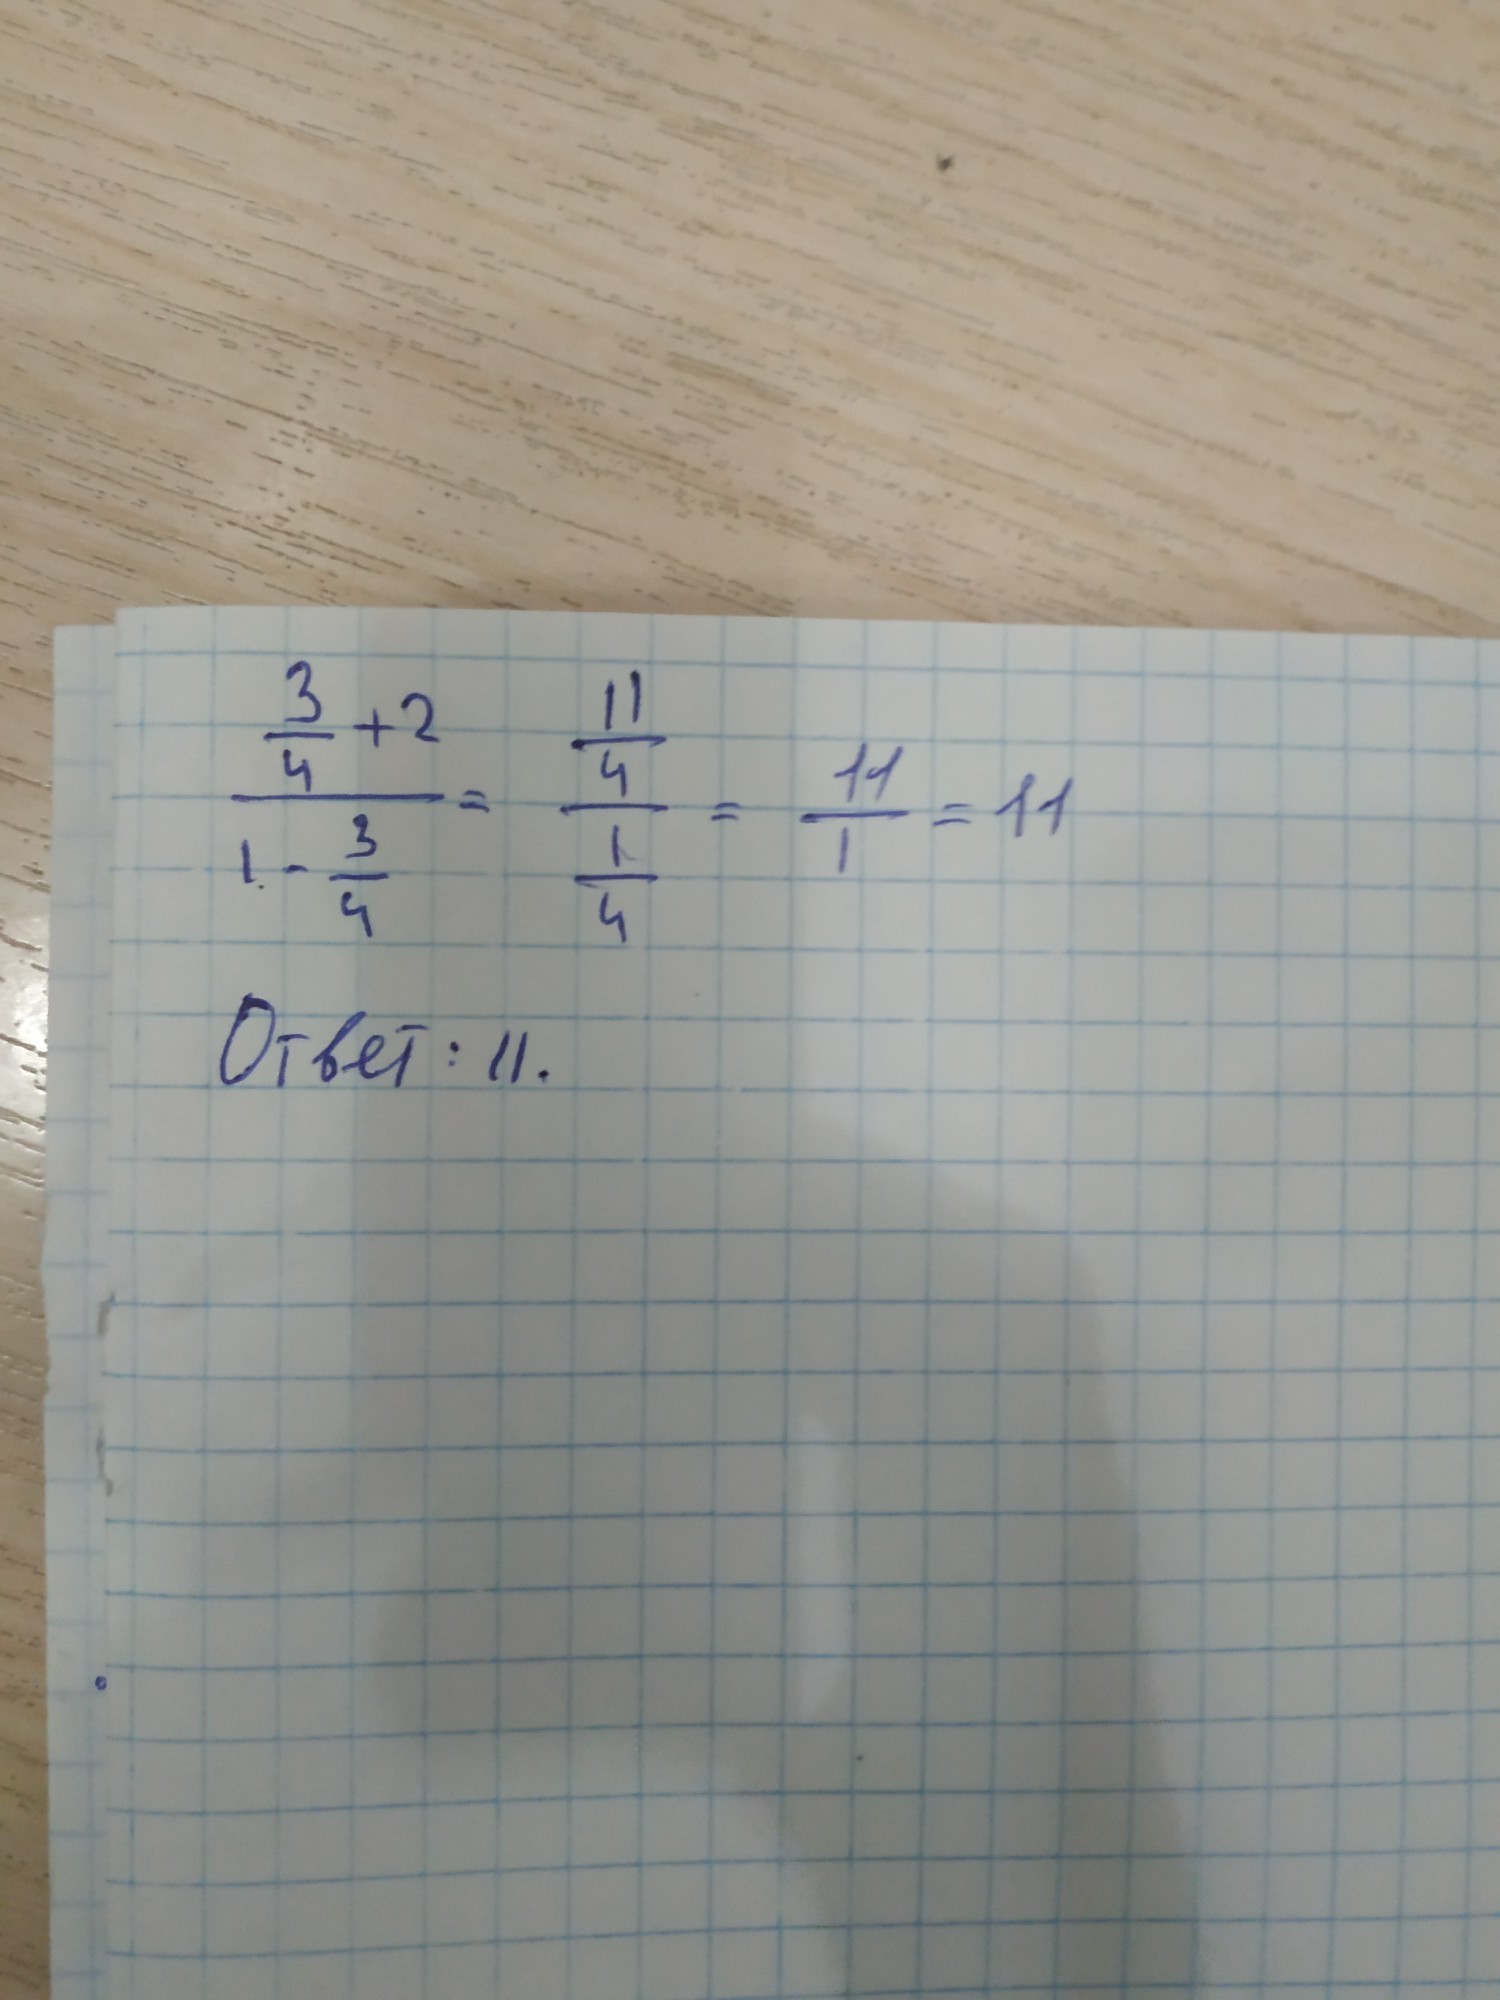 (3/4 + 2)/(1 - 3/4) = (11/4)/(1/4) = 11/1 = 11
Ответ: 11.